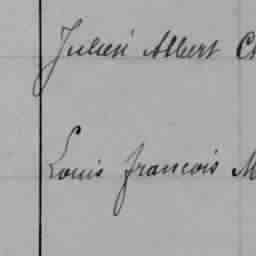 Julien Albert Ch
Louis francois M